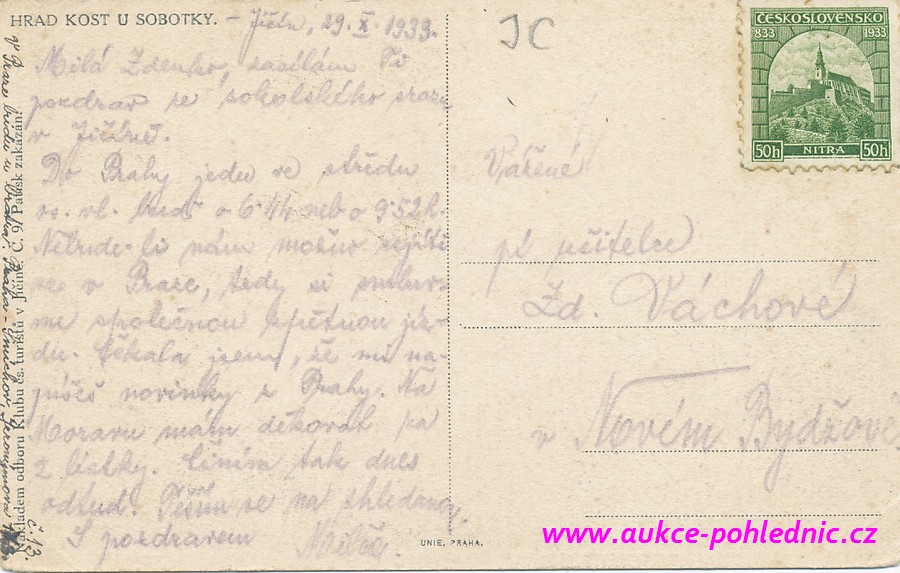 HRAD KOST U SOBOTKY. – Jičín, 29. X. 1933.
Milá Zdenko, zasílám Ti
pozdrav ze sokolského srazu
v Jičíně.
Do Prahy jedu ve středu
os. vl. buď o 6 44 neb o 9 52 h.
Nebude-li nám možno sejíti
se v Praze, tedy si smluv-
me společnou zpětnou jíz-
du. Čekala jsem, že mi na-
píšeš novinky z Prahy. Na
Moravu mám děkovat za
2 lístky. Činím tak dnes
odtud. Těším se na shledanou
S pozdravem
V Praze budu u bratra: Praha - Smíchov,
č. 13.
Nákladem odboru Klubu čs. turistů v Jičíně. Č. 9/ Patisk zakázán!
JC
ČESKOSLOVENSKO
833 1933
50h NITRA 50h
Vážené
pí učitelce
Zd. Váchové
v Novém Bydžově
UNIE, PRAHA.
www.aukce-pohlednic.cz